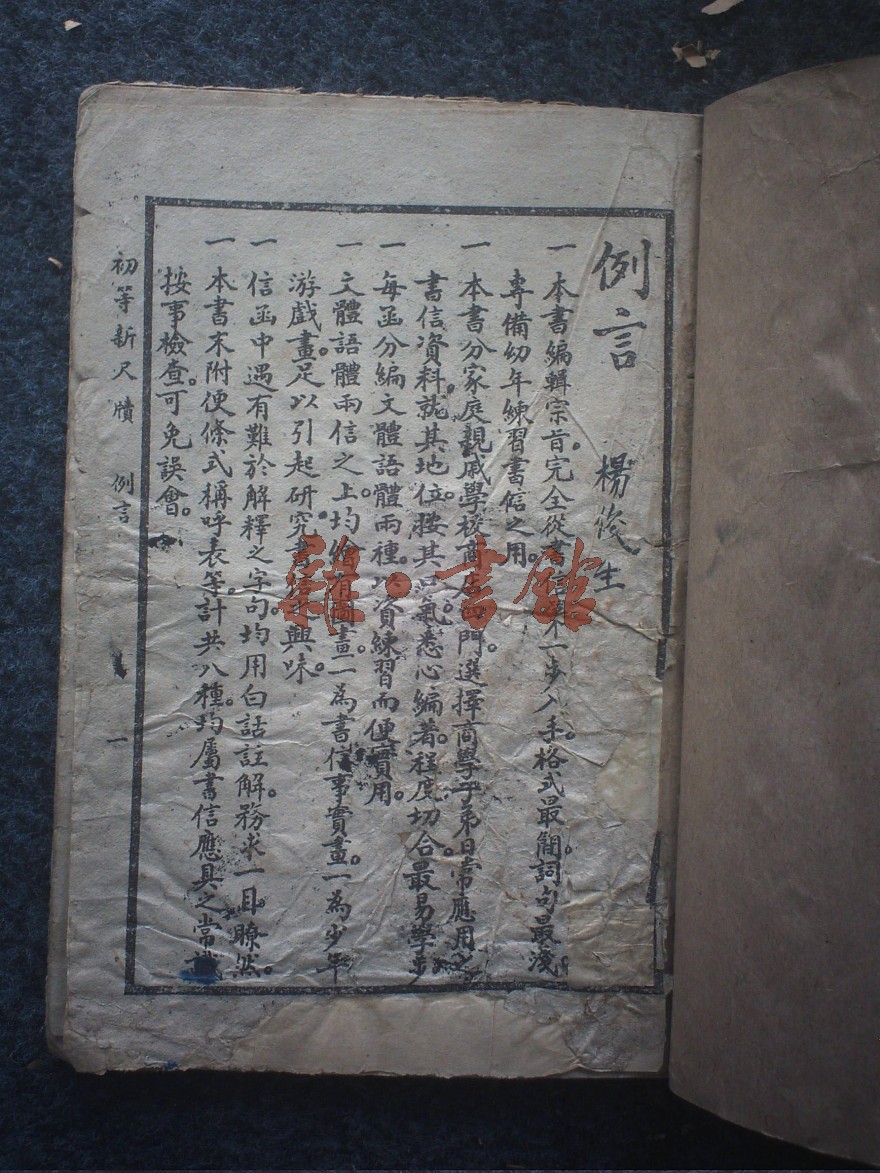 例言
楊俊生
一 本書編輯宗旨。完全從書信第一步入手。格式最簡。詞句最淺。
專備幼年練習書信之用。
一 本書分家庭親戚學校商店四門。選擇商學子弟日常應用之
書信資料。就其地位。按其口氣。悉心編著。程度切合。最易學步
一 每函分編文體語體兩種。以資練習而便實用。
一 文體語體兩信之上。均繪有圖畫。一為書信事實畫。一為少年
游戲畫。足以引起研究書信之興味。
一 信函中遇有難於解釋之字句。均用白話註解。務求一目瞭然。
一 本書末附便條式稱呼表等。計共八種。均屬書信應具之常識
按事檢查。可免誤會。
初等新尺牘 例言 一
雜·書館